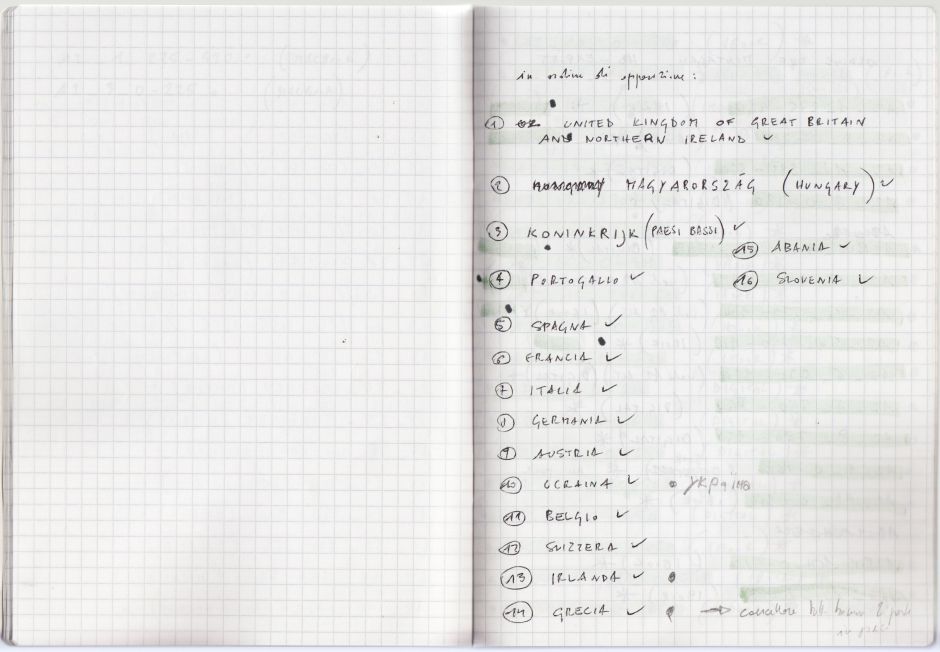 in ordine di apparizione:
1 UNITED KINGDOM OF GREAT BRITAIN
AND NORTHERN IRELAND ✓
2 MAGYARORSZÁG (HUNGARY) ✓
3 KONINKRIJK (PAESI BASSI) ✓
15 ABANIA ✓
4 PORTOGALLO ✓
16 SLOVENIA ✓
5 SPAGNA ✓
6 FRANCIA ✓
7 ITALIA ✓
8 GERMANIA ✓
9 AUSTRIA ✓
10 UCRAINA ✓ • Україна
11 BELGIO ✓
12 SVIZZERA ✓
13 IRLANDA ✓ •
14 GRECIA ✓ • → cancellare